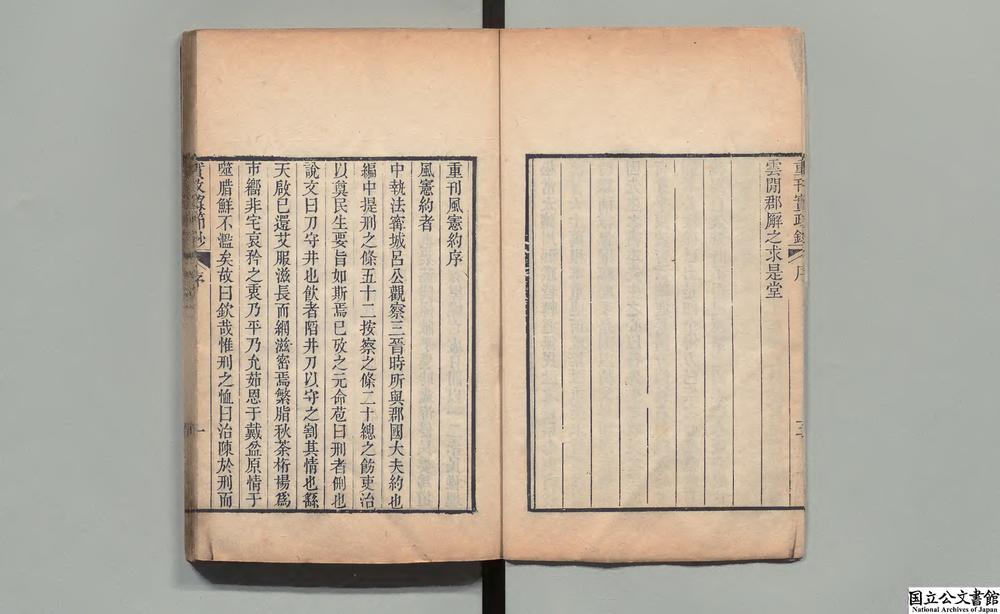 重刊實政錄 序
雲間郡廨之求是堂
重刊風憲約序
風憲約者
中執法甯城呂公觀察三晉時所與郡國大夫約也
編中提刑之條五十二按察之條二十總之飭吏治
以奠民生要旨如斯焉已攷之元命苞曰刑者侀也
說文曰刀守井也飲者陷井刀以守之割其情也繇
天啟已還艾服滋長而網滋密焉繁脂秋荼桁楊爲
市嚮非宅哀矜之衷乃平乃允茹恩于戴盆原情于
噬腊鮮不濫矣故曰欽哉惟刑之恤曰治陳於刑而
序 一
国立公文書館
National Archives of Japan